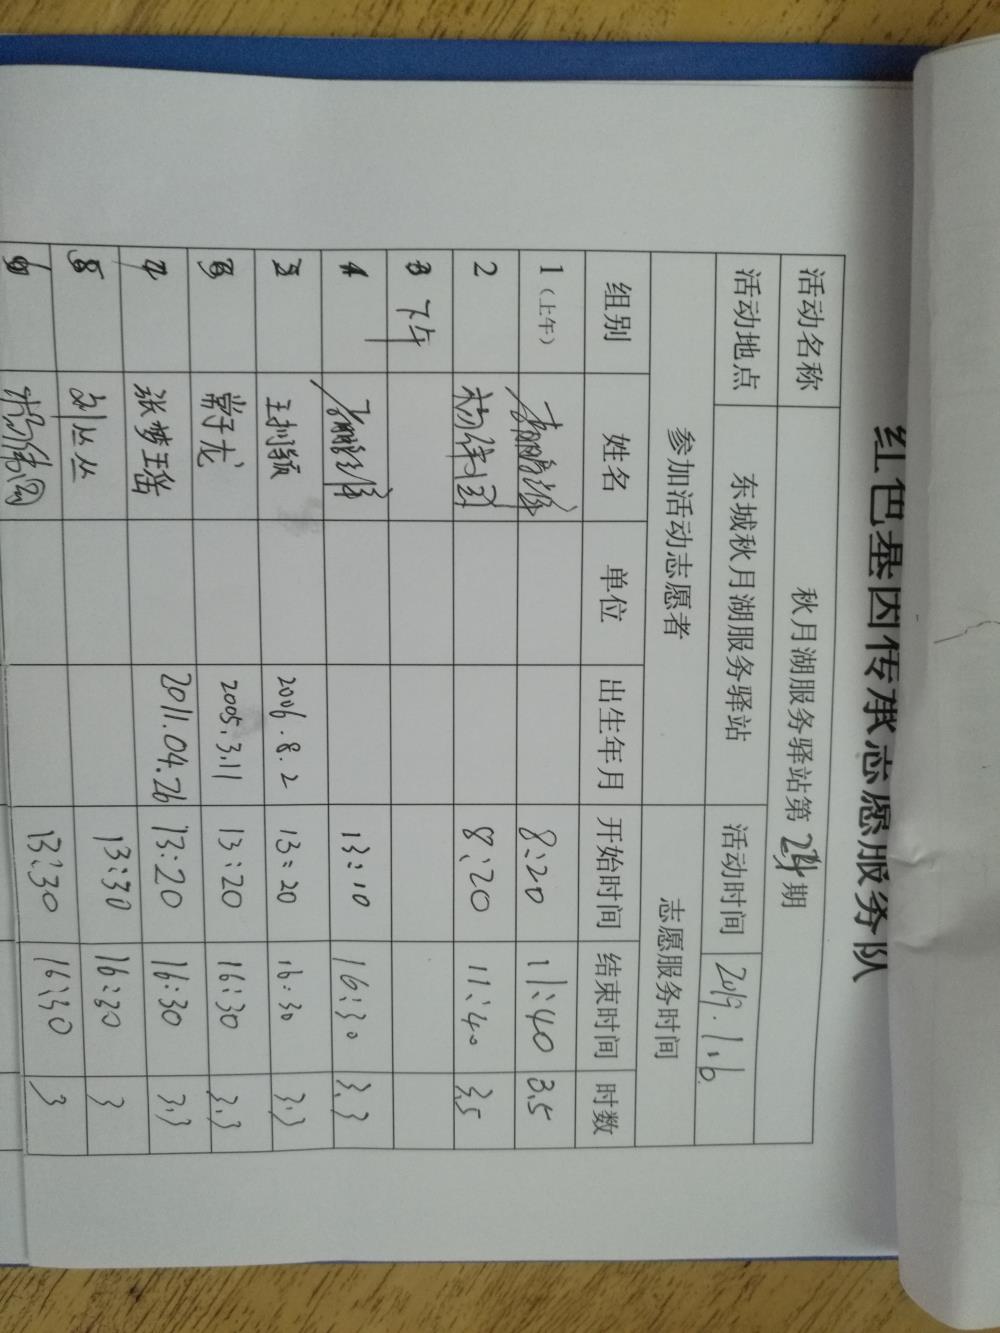 红色基因传承志愿服务队
活动名称 秋月湖服务驿站第 期
活动地点 东城秋月湖服务驿站 活动时间 2019.1.6
参加活动志愿者 志愿服务时间
组别 姓名 单位 出生年月 开始时间 结束时间 时数
1（上午） 8:20 11:40 3.5
2 8:20 11:40 3.5
下午
1 13:10 16:30 3.3
2 王利颖 2006.8.2 13:20 16:30 3.3
3 常子龙 2005.3.11 13:20 16:30 3.3
4 张梦瑶 2011.04.26 13:20 16:30 3.3
5 刘丛丛 13:30 16:30 3
6 13:30 16:30 3